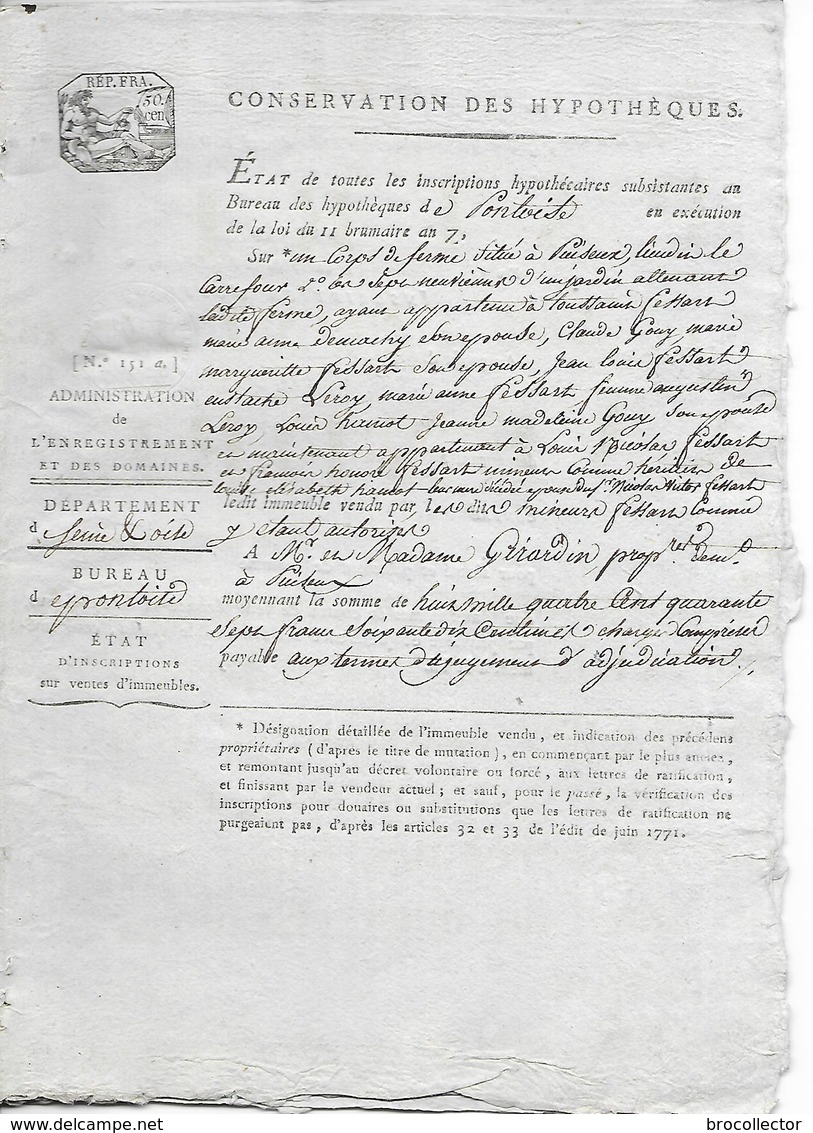 RÉP. FRA.
50.
cen
CONSERVATION DES HYPOTHÈQUES.
ÉTAT de toutes les inscriptions hypothécaires subsistantes au
Bureau des hypothèques de Pontoise en exécution
de la loi du 11 brumaire an 7,
Sur * un Corps de ferme située à Puiseux, lieudit le
Carrefour 2.° les Sept neuvièmes d'un jardin attenant
ladite ferme, ayant appartenu à toussaint fessart
marie anne demachy son epouse, Claude Gouy, marie
margueritte fessart Son epouse, Jean louis fessart
eustache Leroy, marie anne fessart femme augustin
Leroy, Louis hamot Jeanne madeleine Gouy Son epouse
et maintenant appartenant à Louis Nicolas fessart
et francois honoré fessart mineurs Comme heritiers de
louise elisabeth hamot leur mere décédée epouse du S.r Nicolas Victor fessart
ledit immeuble vendu par les dits mineurs fessart comme
y etant autorisés
A M.r et Madame Girardin, prop.res dem.t
à Puiseux
moyennant la somme de huit mille quatre Cent quarante
Sept francs Soixante dix Centimes charges Comprises
payable aux termes du jugement d'adjudication.
[ N.° 151 a. ]
ADMINISTRATION
de
L'ENREGISTREMENT
ET DES DOMAINES.
DÉPARTEMENT
d Seine & oise
BUREAU
de pontoise
ÉTAT
D'INSCRIPTIONS
sur ventes d'immeubles.
* Désignation détaillée de l'immeuble vendu, et indication des précédens
propriétaires (d'après le titre de mutation), en commençant par le plus ancien,
et remontant jusqu'au décret volontaire ou forcé, aux lettres de ratification,
et finissant par le vendeur actuel; et sauf, pour le passé, la vérification des
inscriptions pour douaires ou substitutions que les lettres de ratification ne
purgeaient pas, d'après les articles 32 et 33 de l'édit de juin 1771.
brocollector